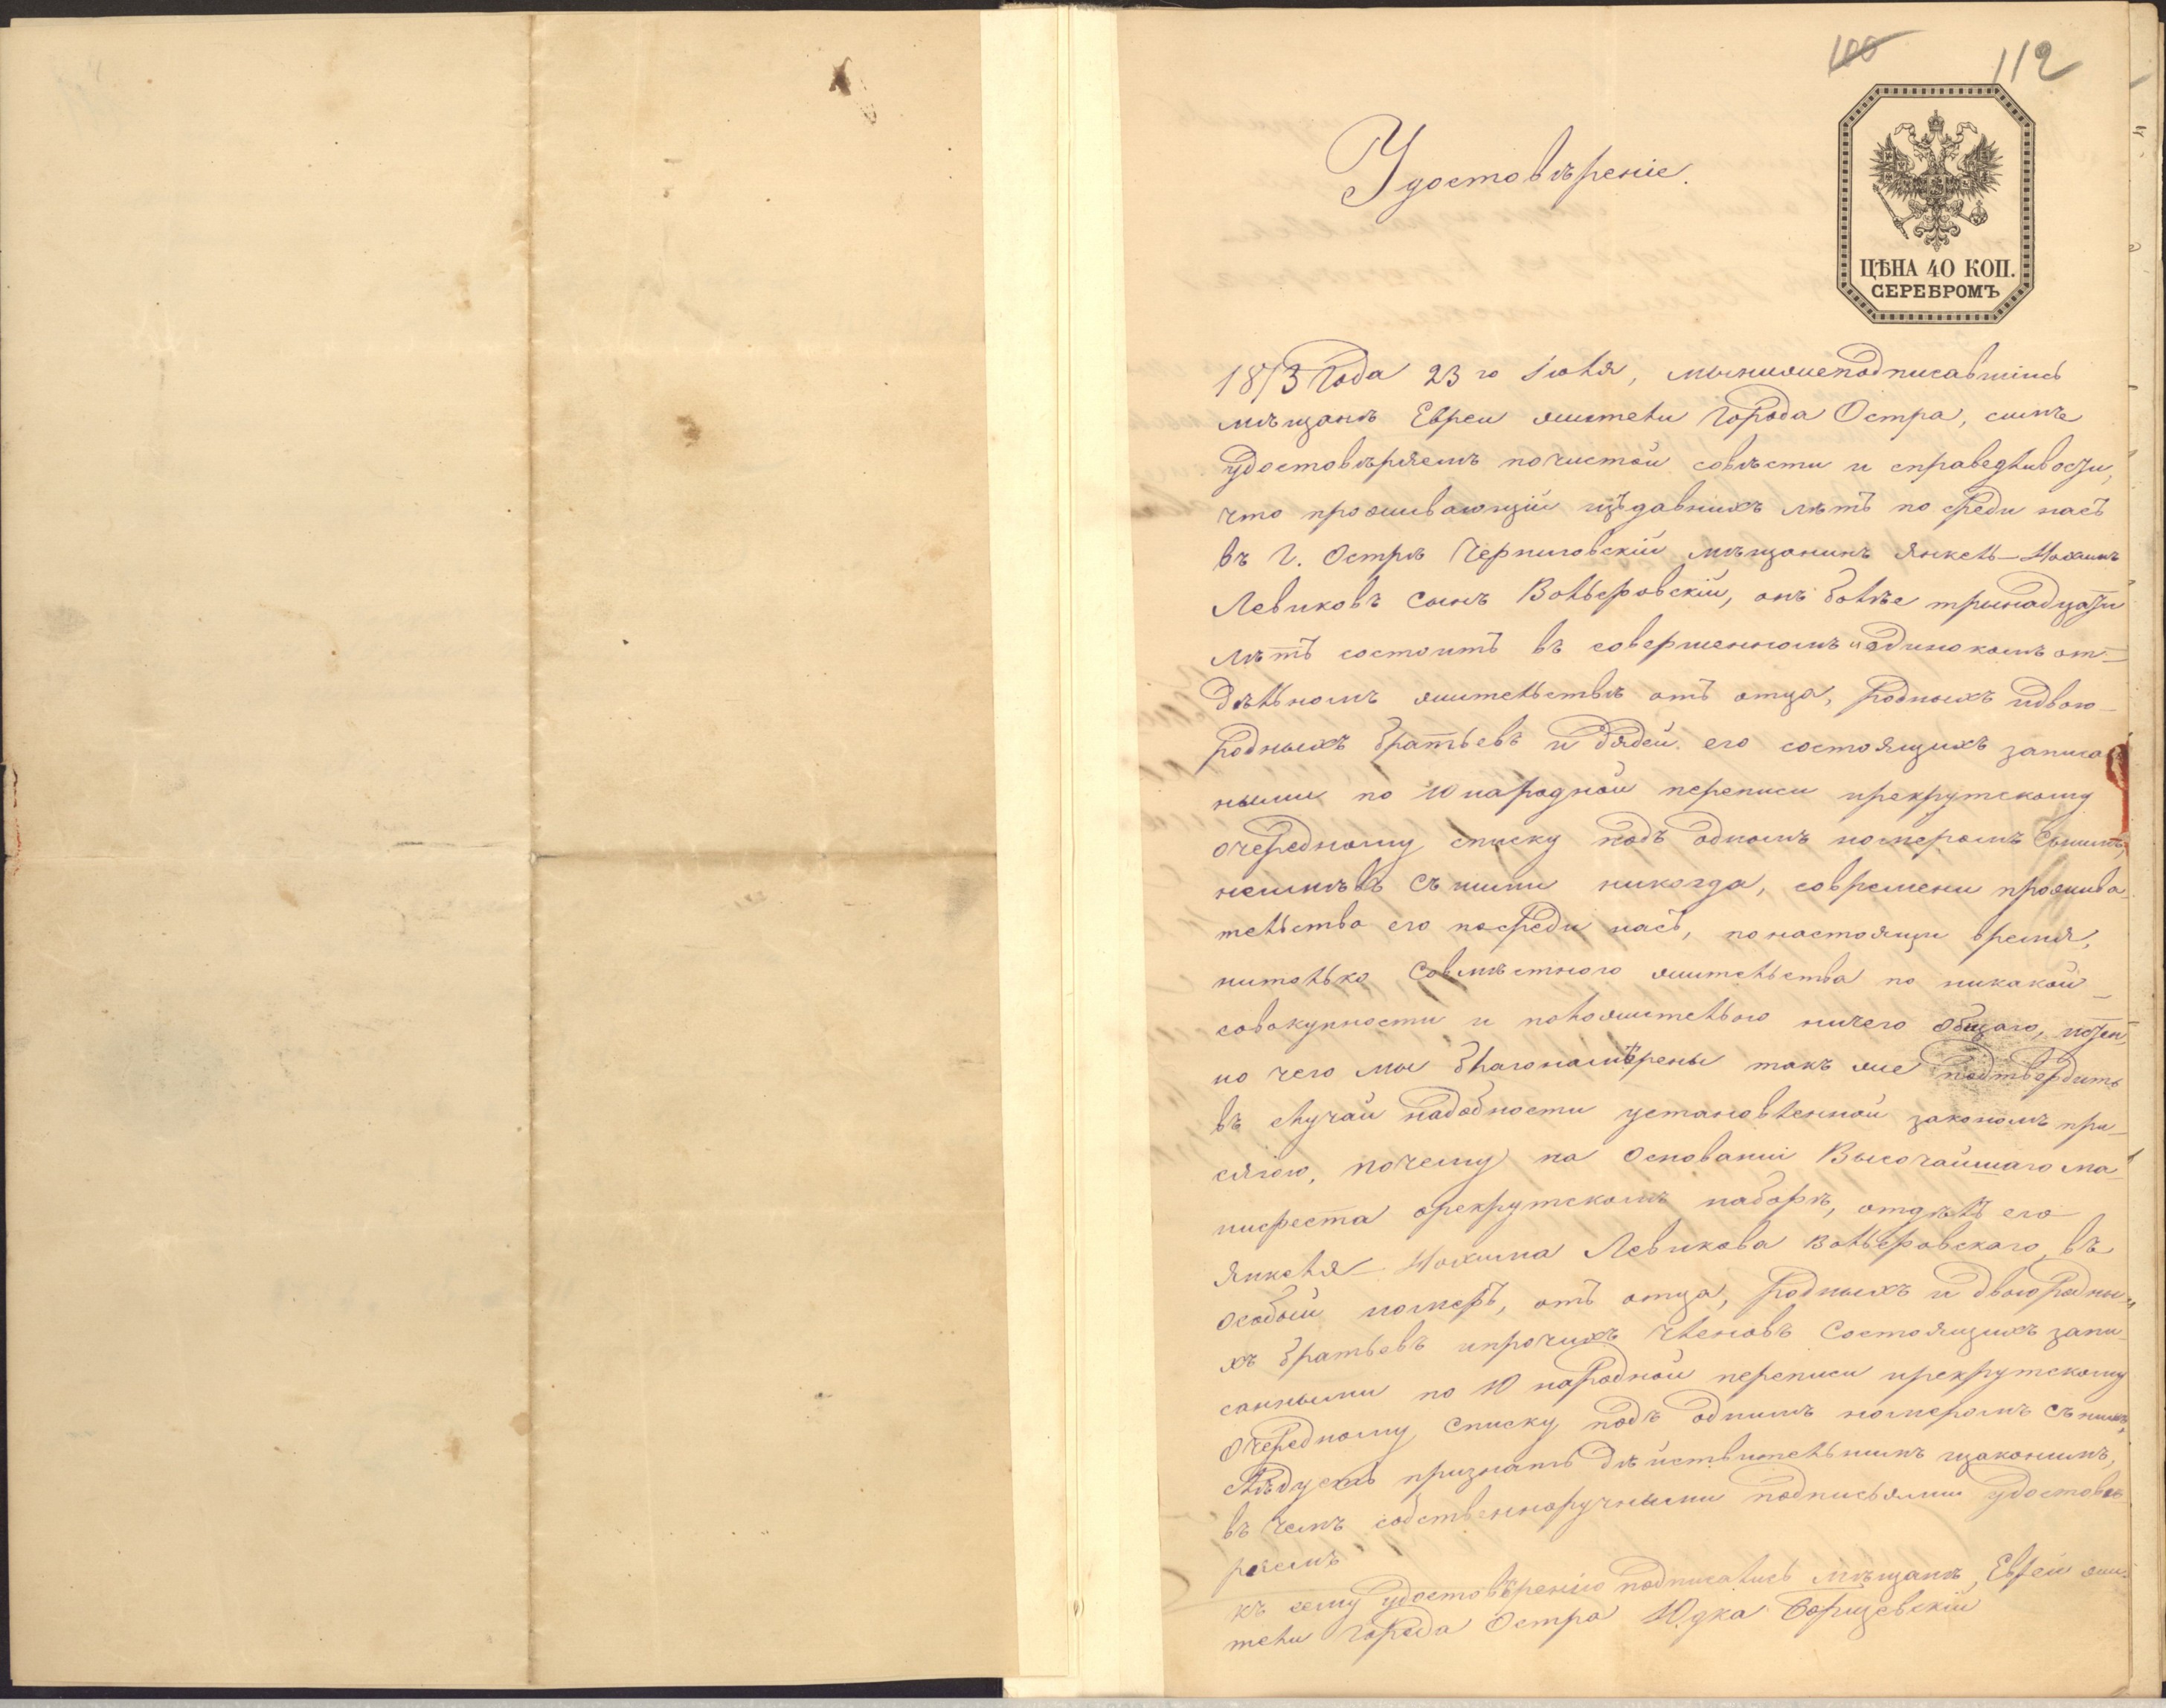 100 112
Удостовѣреніе.
ЦѢНА 40 КОП.
СЕРЕБРОМЪ
1873 Года 23 го Іюля, мынижеподписавшіись
мѣщанѣ Евреи жители города Остра, симъ
удостовѣряемъ почистой совѣсти и справедливости,
что проживающій издавнихъ лѣтъ по среди насъ
въ г. Острѣ Черниговскій мѣщанинъ Янкель-Нохимъ
Левиковъ сынъ Вольеровскій, онъ болѣе трынадцати
лѣтъ состоитъ въ совершенномъ иодинокомъ от-
дѣльномъ жительствѣ отъ отца, родныхъ идвою-
родныхъ братьевъ и дядей его состоящихъ записа-
ными по 10 народной переписи ирекрутскому
очередному списку подъ одномъ номеромъ сънимъ,
неимѣлъ съ ними никогда, современи прожива-
тельства его посреди насъ, понастоящи время,
нитолько совмѣстного жительства но никакой
совокупности и поможительного ничего общаго,
но чего мы благонамѣрены такъ же подтвердить
въ случаи надобности установленной закономъ при-
сягою, почему на основаніи Высочайшаго ма-
нифеста орекрутскомъ наборѣ, отдѣлъ его
Янкеля-Нохима Левикова Вольеровскаго, въ
особый номеръ, отъ отца, родныхъ и двоюродны-
хъ братьевъ ипрочихъ членовъ состоящихъ запи-
санными по 10 народной переписи ирекрутскому
очередному списку подъ однимъ номеромъ съ нимъ,
слѣдуетъ признать дѣйствительнимъ изаконимъ,
въ чемъ собственноручными подписьями удостовѣ-
ряемъ
къ сему удостовѣренію подписались мѣщанѣ, Евреи жи-
тели города Остра Юдка Борщевскій